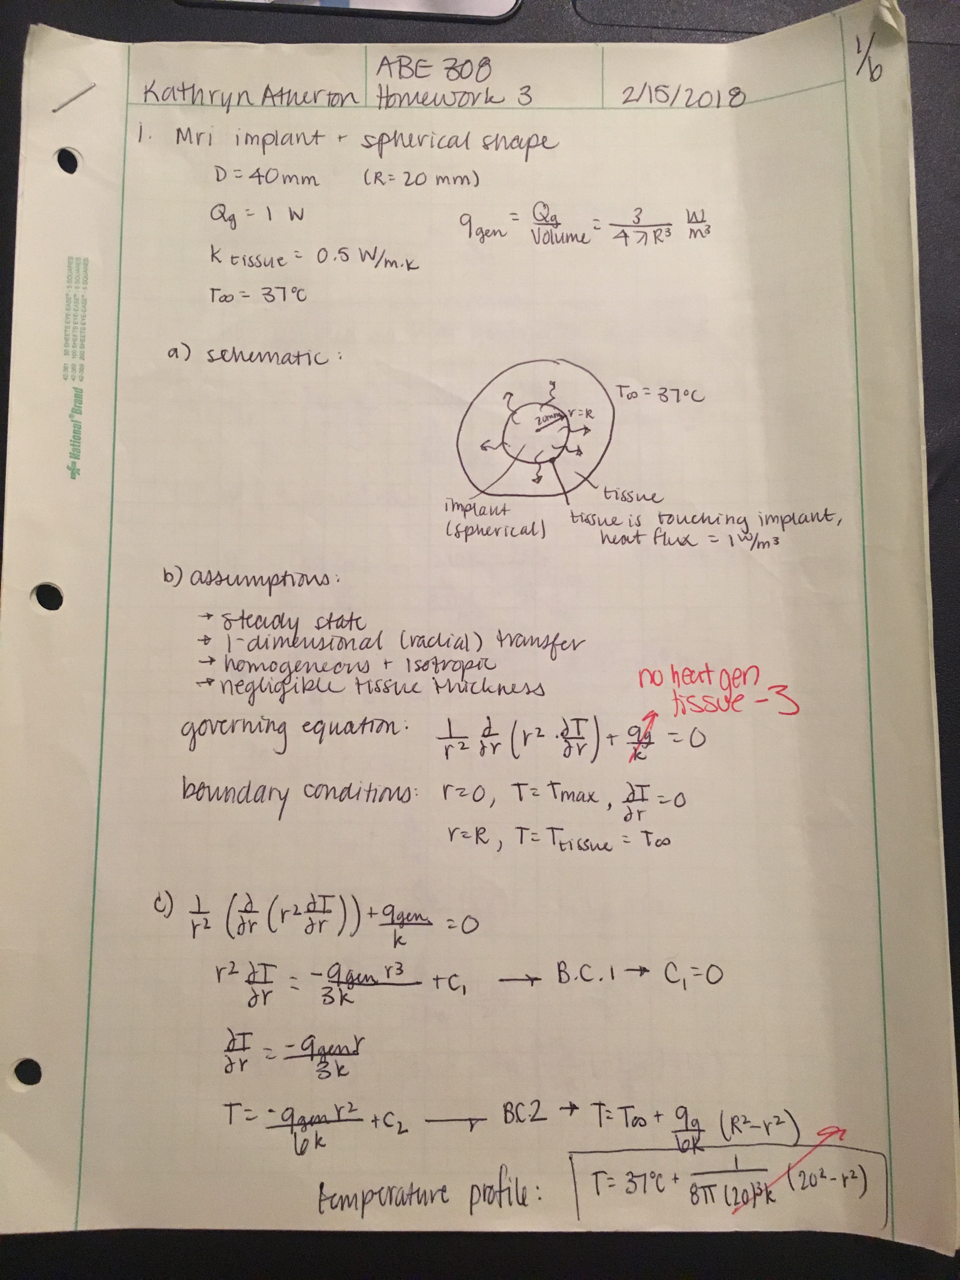 1/6
ABE 308
Kathryn Atherton Homework 3 2/15/2018
1. Mri implant + spherical shape
D = 40mm (R = 20 mm)
Qg = 1 W
q gen = Qg / Volume = 3 / 4πR³ W/m³
K tissue = 0.5 W/m·K
T∞ = 37°C
a) schematic:
T∞ = 37°C
20mm r=R
tissue
implant (spherical)
tissue is touching implant,
heat flux = 1 W/m³
b) assumptions:
→ steady state
→ 1-dimensional (radial) transfer
→ homogeneous + isotropic
→ negligible tissue thickness
no heat gen
tissue -3
governing equation: 1/r² ∂/∂r (r² · ∂T/∂r) + qg/k = 0
boundary conditions: r=0, T = Tmax, ∂T/∂r = 0
r=R, T = Ttissue = T∞
c) 1/r² (∂/∂r (r² ∂T/∂r)) + qgen/k = 0
r² ∂T/∂r = -qgen r³/3k + C₁ → B.C.1 → C₁ = 0
∂T/∂r = -qgen r/3k
T = -qgen r²/6k + C₂ → BC2 → T = T∞ + qg/6k (R²-r²)
temperature profile: T = 37°C + 1/8π(20)³k (20²-r²)
National® Brand